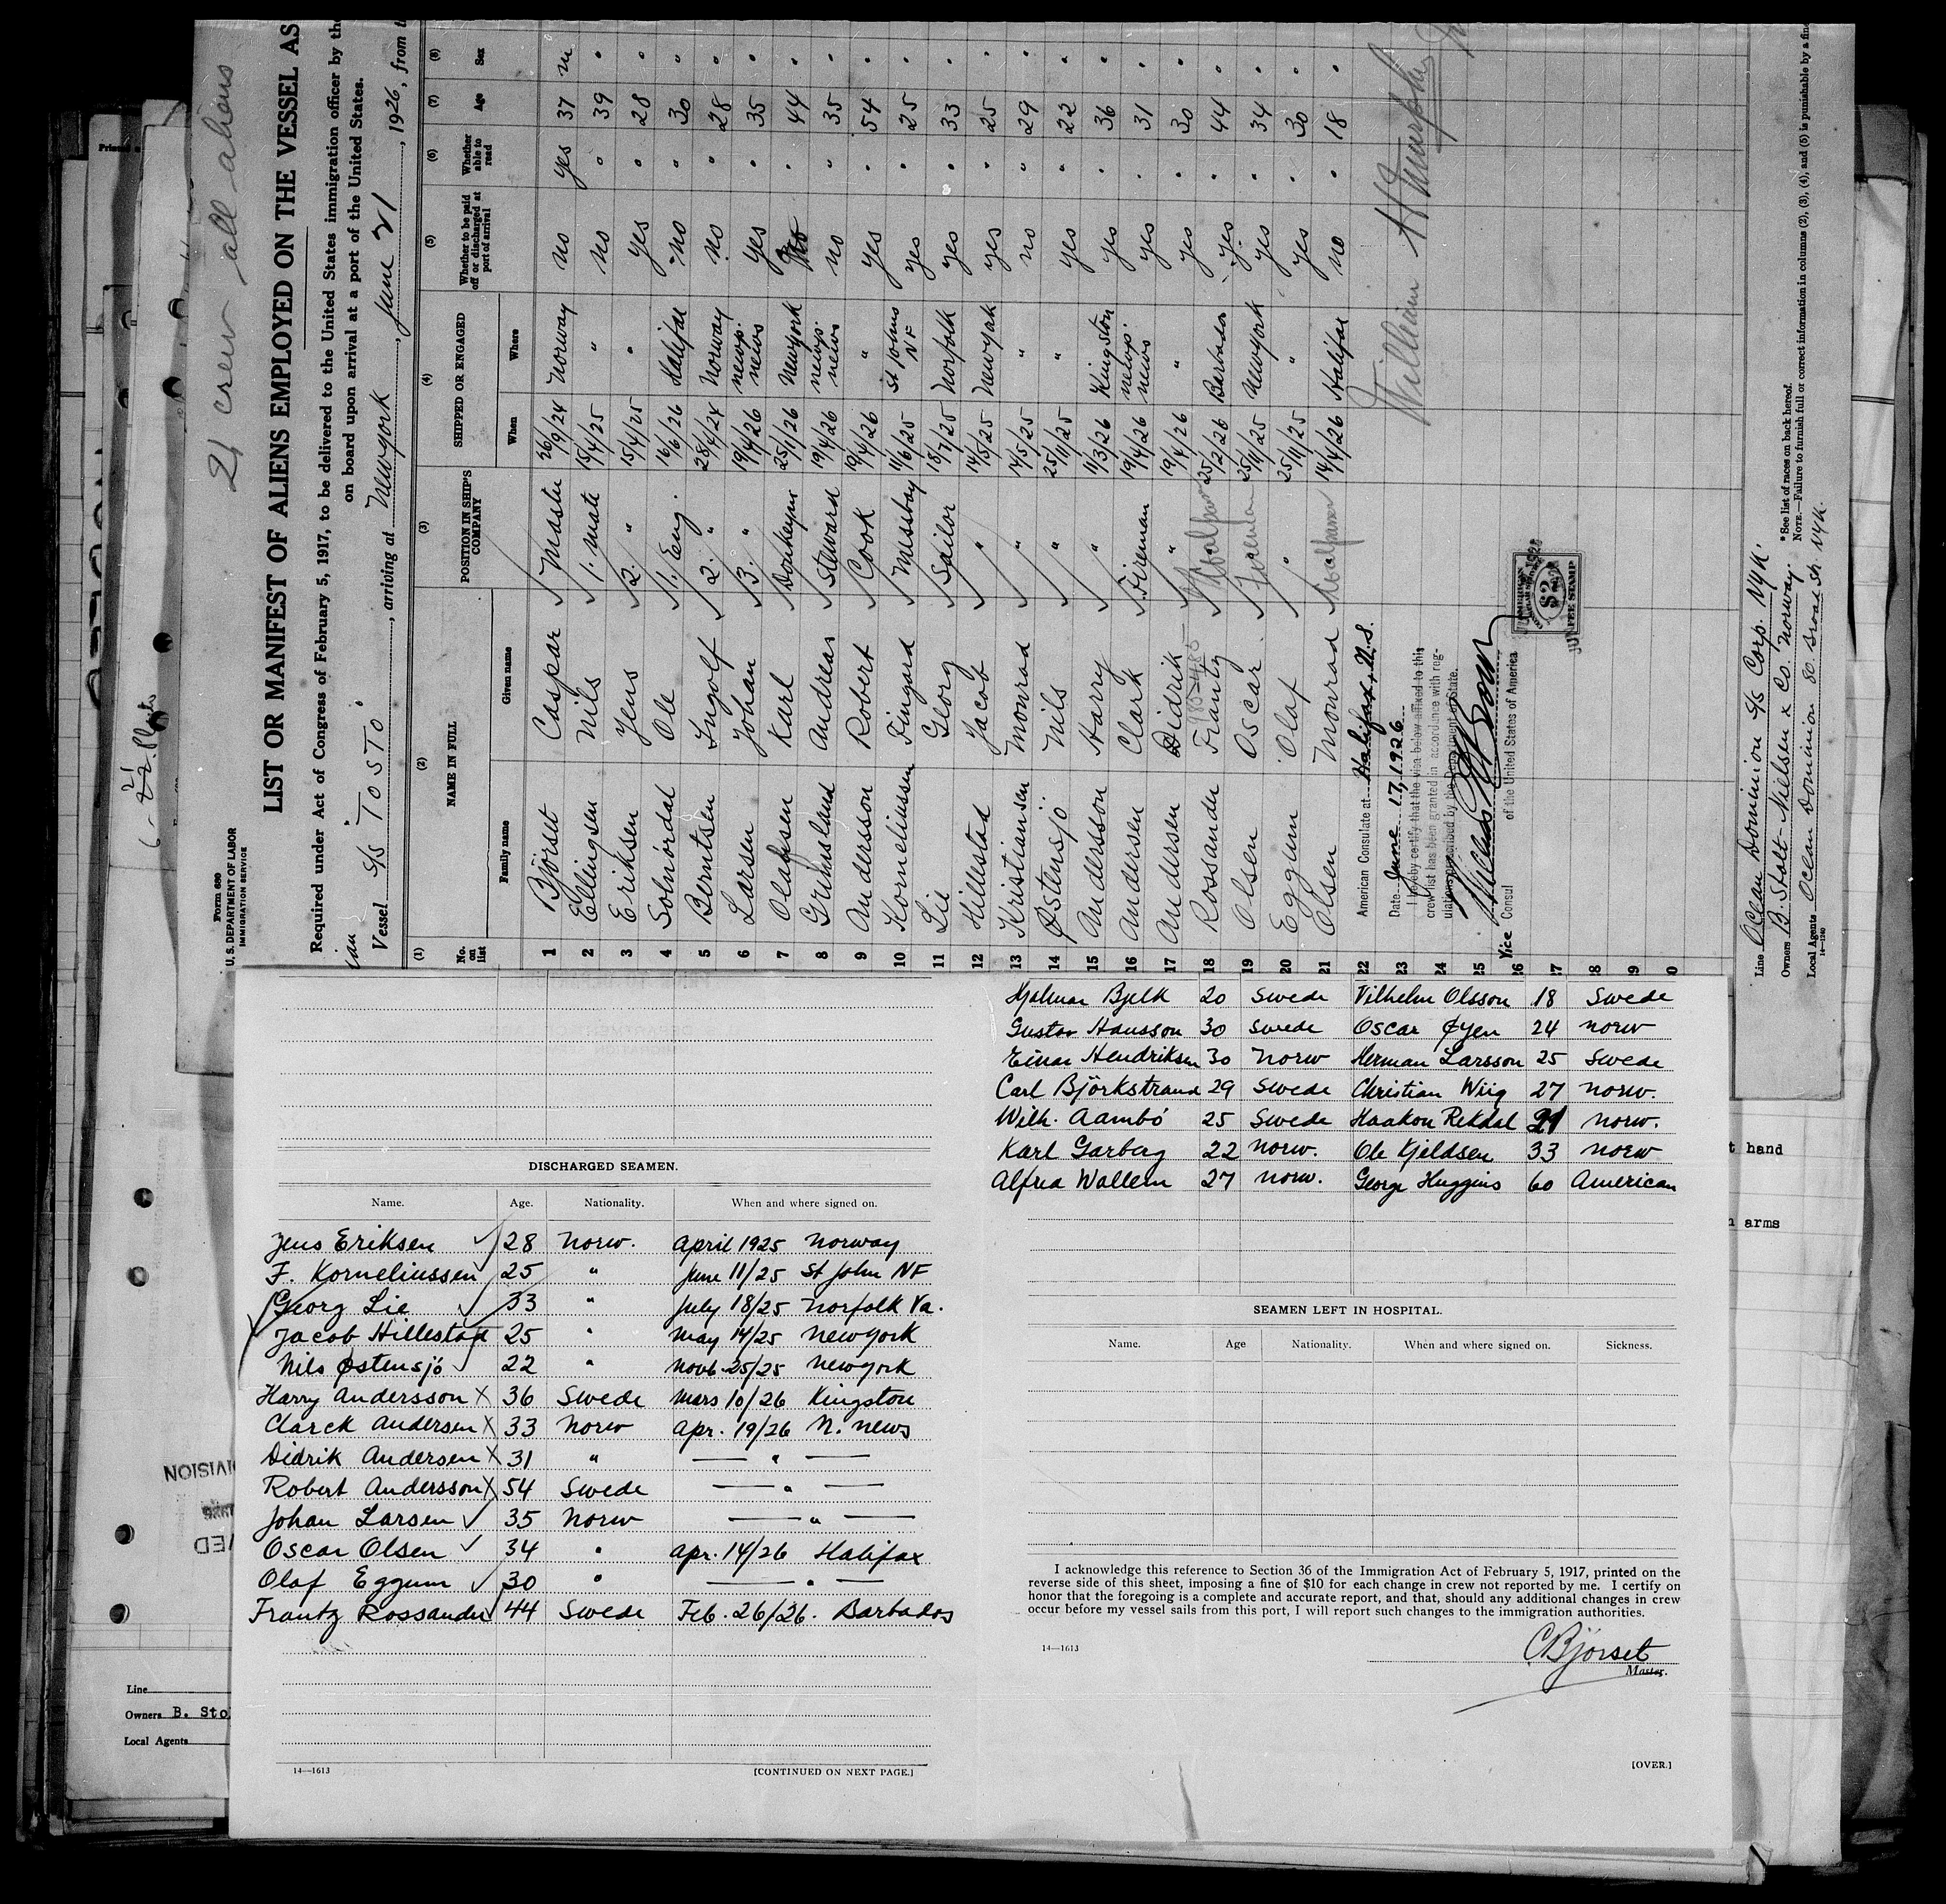 21 crew all aliens
Form 680
U. S. DEPARTMENT OF LABOR
IMMIGRATION SERVICE
LIST OR MANIFEST OF ALIENS EMPLOYED ON THE VESSEL AS
Required under Act of Congress of February 5, 1917, to be delivered to the United States immigration officer by the
on board upon arrival at a port of the United States.
Vessel S/S "TOSTO", arriving at Newyork, June 21, 1926, from t
(1) (2) (3) (4) (5) (6) (7) (8)
No. on list NAME IN FULL POSITION IN SHIP'S COMPANY SHIPPED OR ENGAGED Whether to be paid off or discharged at port of arrival Whether able to read Age Sex
Family name Given name When Where
1 Björset Caspar Master 26/9/24 Norway no yes 37 m
2 Ellingsen Nils 1. mate 15/4/25 " no " 39 "
3 Eriksen Jens 2. " 15/4/25 " yes " 28 "
4 Solnördal Ole 1. Eng. 16/6/26 Halifax no " 30 "
5 Berntsen Ingolf 2. " 28/4/24 Norway no " 28 "
6 Larsen Johan 3. " 19/4/26 newp. news yes " 35 "
7 Olafsen Karl Donkeyman 25/1/26 Newyork no " 44 "
8 Grimsland Andreas Steward 19/4/26 newp. news no " 35 "
9 Andersson Robert Cook 19/4/26 " yes " 54 "
10 Korneliussen Fingard Messboy 11/6/25 St Johns NF yes " 25 "
11 Lie Georg Sailor 18/7/25 Norfolk yes " 33 "
12 Hillestad Jacob " 14/5/25 Newyork yes " 25 "
13 Kristiansen Monrad " 14/5/25 " no " 29 "
14 Østensjö Nils " 25/11/25 " yes " 22 "
15 Andersson Harry " 11/3/26 Kingston yes " 36 "
16 Andersen Clark Fireman 19/4/26 newp. news yes " 31 "
17 Andersen Didrik " 19/4/26 " yes " 30 "
18 Rossander Frantz 25/2/26 Barbados yes " 44 "
19 Olsen Oscar Fireman 25/11/25 Newyork yes " 34 "
20 Eggum Olaf " 25/11/25 " yes " 30 "
21 Olsen Monrad 14/4/26 Halifax no " 18 "
22 American Consulate at Halifax, N.S.
23 Date June 17, 1926
24 I hereby certify that the visa below affixed to this
crew list has been granted in accordance with reg-
ulations prescribed by the Department of State.
25
26 Vice Consul of the United States of America
$2
FEE STAMP
William H Murphy
Line Ocean Dominion S/S Corp. NYK.
Owners B. Stolt-Nielsen & Co. Norway.
Local Agents Ocean Dominion 80 Broad St. NYK.
14—1240
* See list of races on back hereof.
NOTE.—Failure to furnish full or correct information in columns (2), (3), (4), and (5) is punishable by a fine
DISCHARGED SEAMEN.
Name. Age. Nationality. When and where signed on.
Jens Eriksen 28 Norw. April 1925 Norway
F. Korneliussen 25 " June 11/25 St John NF
Georg Lie 33 " July 18/25 Norfolk Va.
Jacob Hillestad 25 " May 14/25 Newyork
Nils Østensjö 22 " Novb 25/25 Newyork
Harry Andersson X 36 Swede Mars 10/26 Kingston
Clarck Andersen X 33 Norw Apr. 19/26 N. news
Didrik Andersen X 31 " — " —
Robert Andersson X 54 Swede — " —
Johan Larsen 35 Norw — " —
Oscar Olsen 34 " apr. 14/26 Halifax
Olaf Eggum 30 " — " —
Frantz Rossander 44 Swede Feb. 26/26. Barbados
14—1613
[CONTINUED ON NEXT PAGE.]
Hjalmar Bjelk 20 Swede Vilhelm Olsson 18 Swede
Gustav Hansson 30 Swede Oscar Øyen 24 Norw
Einar Hendriksen 30 Norw Herman Larsson 25 Swede
Carl Björkstrand 29 Swede Christian Wiig 27 Norw.
Wilh. Aambö 25 Swede Haakon Rekdal 21 Norw.
Karl Garberg 22 Norw. Ole Kjeldsen 33 Norw
Alfred Wallem 27 Norw. George Huggins 60 American
SEAMEN LEFT IN HOSPITAL.
Name. Age Nationality. When and where signed on. Sickness.
I acknowledge this reference to Section 36 of the Immigration Act of February 5, 1917, printed on the
reverse side of this sheet, imposing a fine of $10 for each change in crew not reported by me. I certify on
honor that the foregoing is a complete and accurate report, and that, should any additional changes in crew
occur before my vessel sails from this port, I will report such changes to the immigration authorities.
C Björset
Master.
14—1613
[OVER.]
t hand
arms
Line
Owners B. Sto
Local Agents